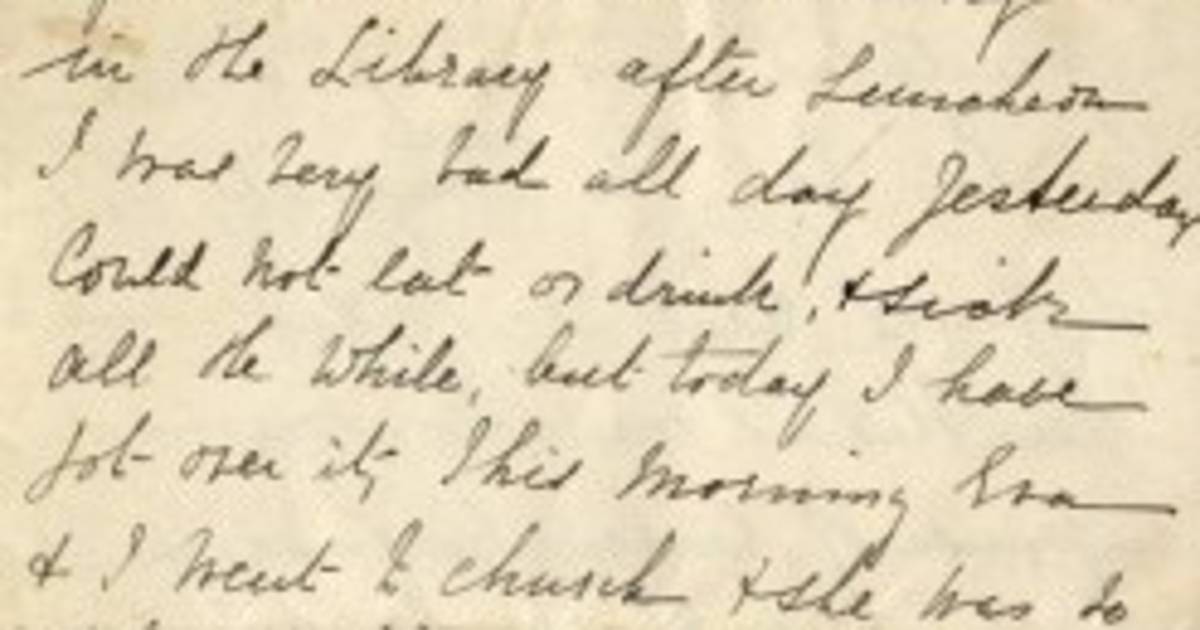 in the Library after Luncheon
I was very bad all day yesterday
Could not eat or drink, & sick
all the while, but today I have
got over it, This morning Eva
& I went to church & she was so